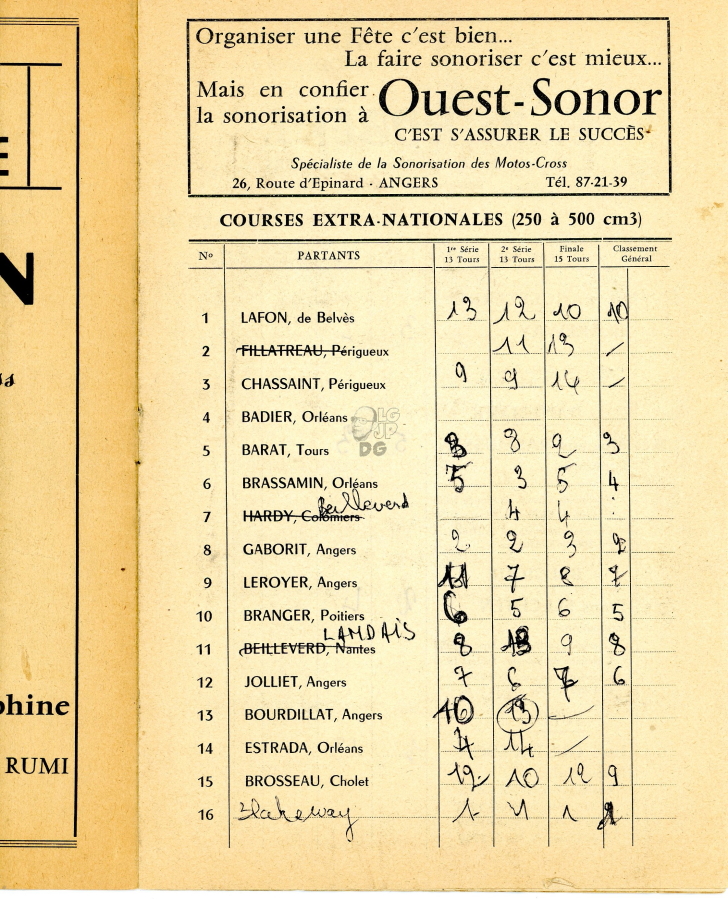 E
N
phine
RUMI
Organiser une Fête c'est bien...
La faire sonoriser c'est mieux...
Mais en confier
la sonorisation à Ouest-Sonor
C'EST S'ASSURER LE SUCCÈS
Spécialiste de la Sonorisation des Motos-Cross
26, Route d'Epinard - ANGERS Tél. 87-21-39
COURSES EXTRA-NATIONALES (250 à 500 cm3)
No PARTANTS 1re Série 13 Tours 2e Série 13 Tours Finale 15 Tours Classement Général
1 LAFON, de Belvès 13 12 10 10
2 FILLATREAU, Périgueux 11 13 -
3 CHASSAINT, Périgueux 9 9 14 -
4 BADIER, Orléans
LG
JP
DG
5 BARAT, Tours 3 8 2 3
6 BRASSAMIN, Orléans 5 3 5 4
Beilleverd
7 HARDY, Colomiers 4 4
8 GABORIT, Angers 2 2 3 2
9 LEROYER, Angers 11 7 8 7
10 BRANGER, Poitiers 6 5 6 5
LANDAIS
11 BEILLEVERD, Nantes 8 9 8
12 JOLLIET, Angers 7 6 7 6
13 BOURDILLAT, Angers 10 13 -
14 ESTRADA, Orléans 4 14 -
15 BROSSEAU, Cholet 12 10 12 9
16 Blakeway 1 1 1 1